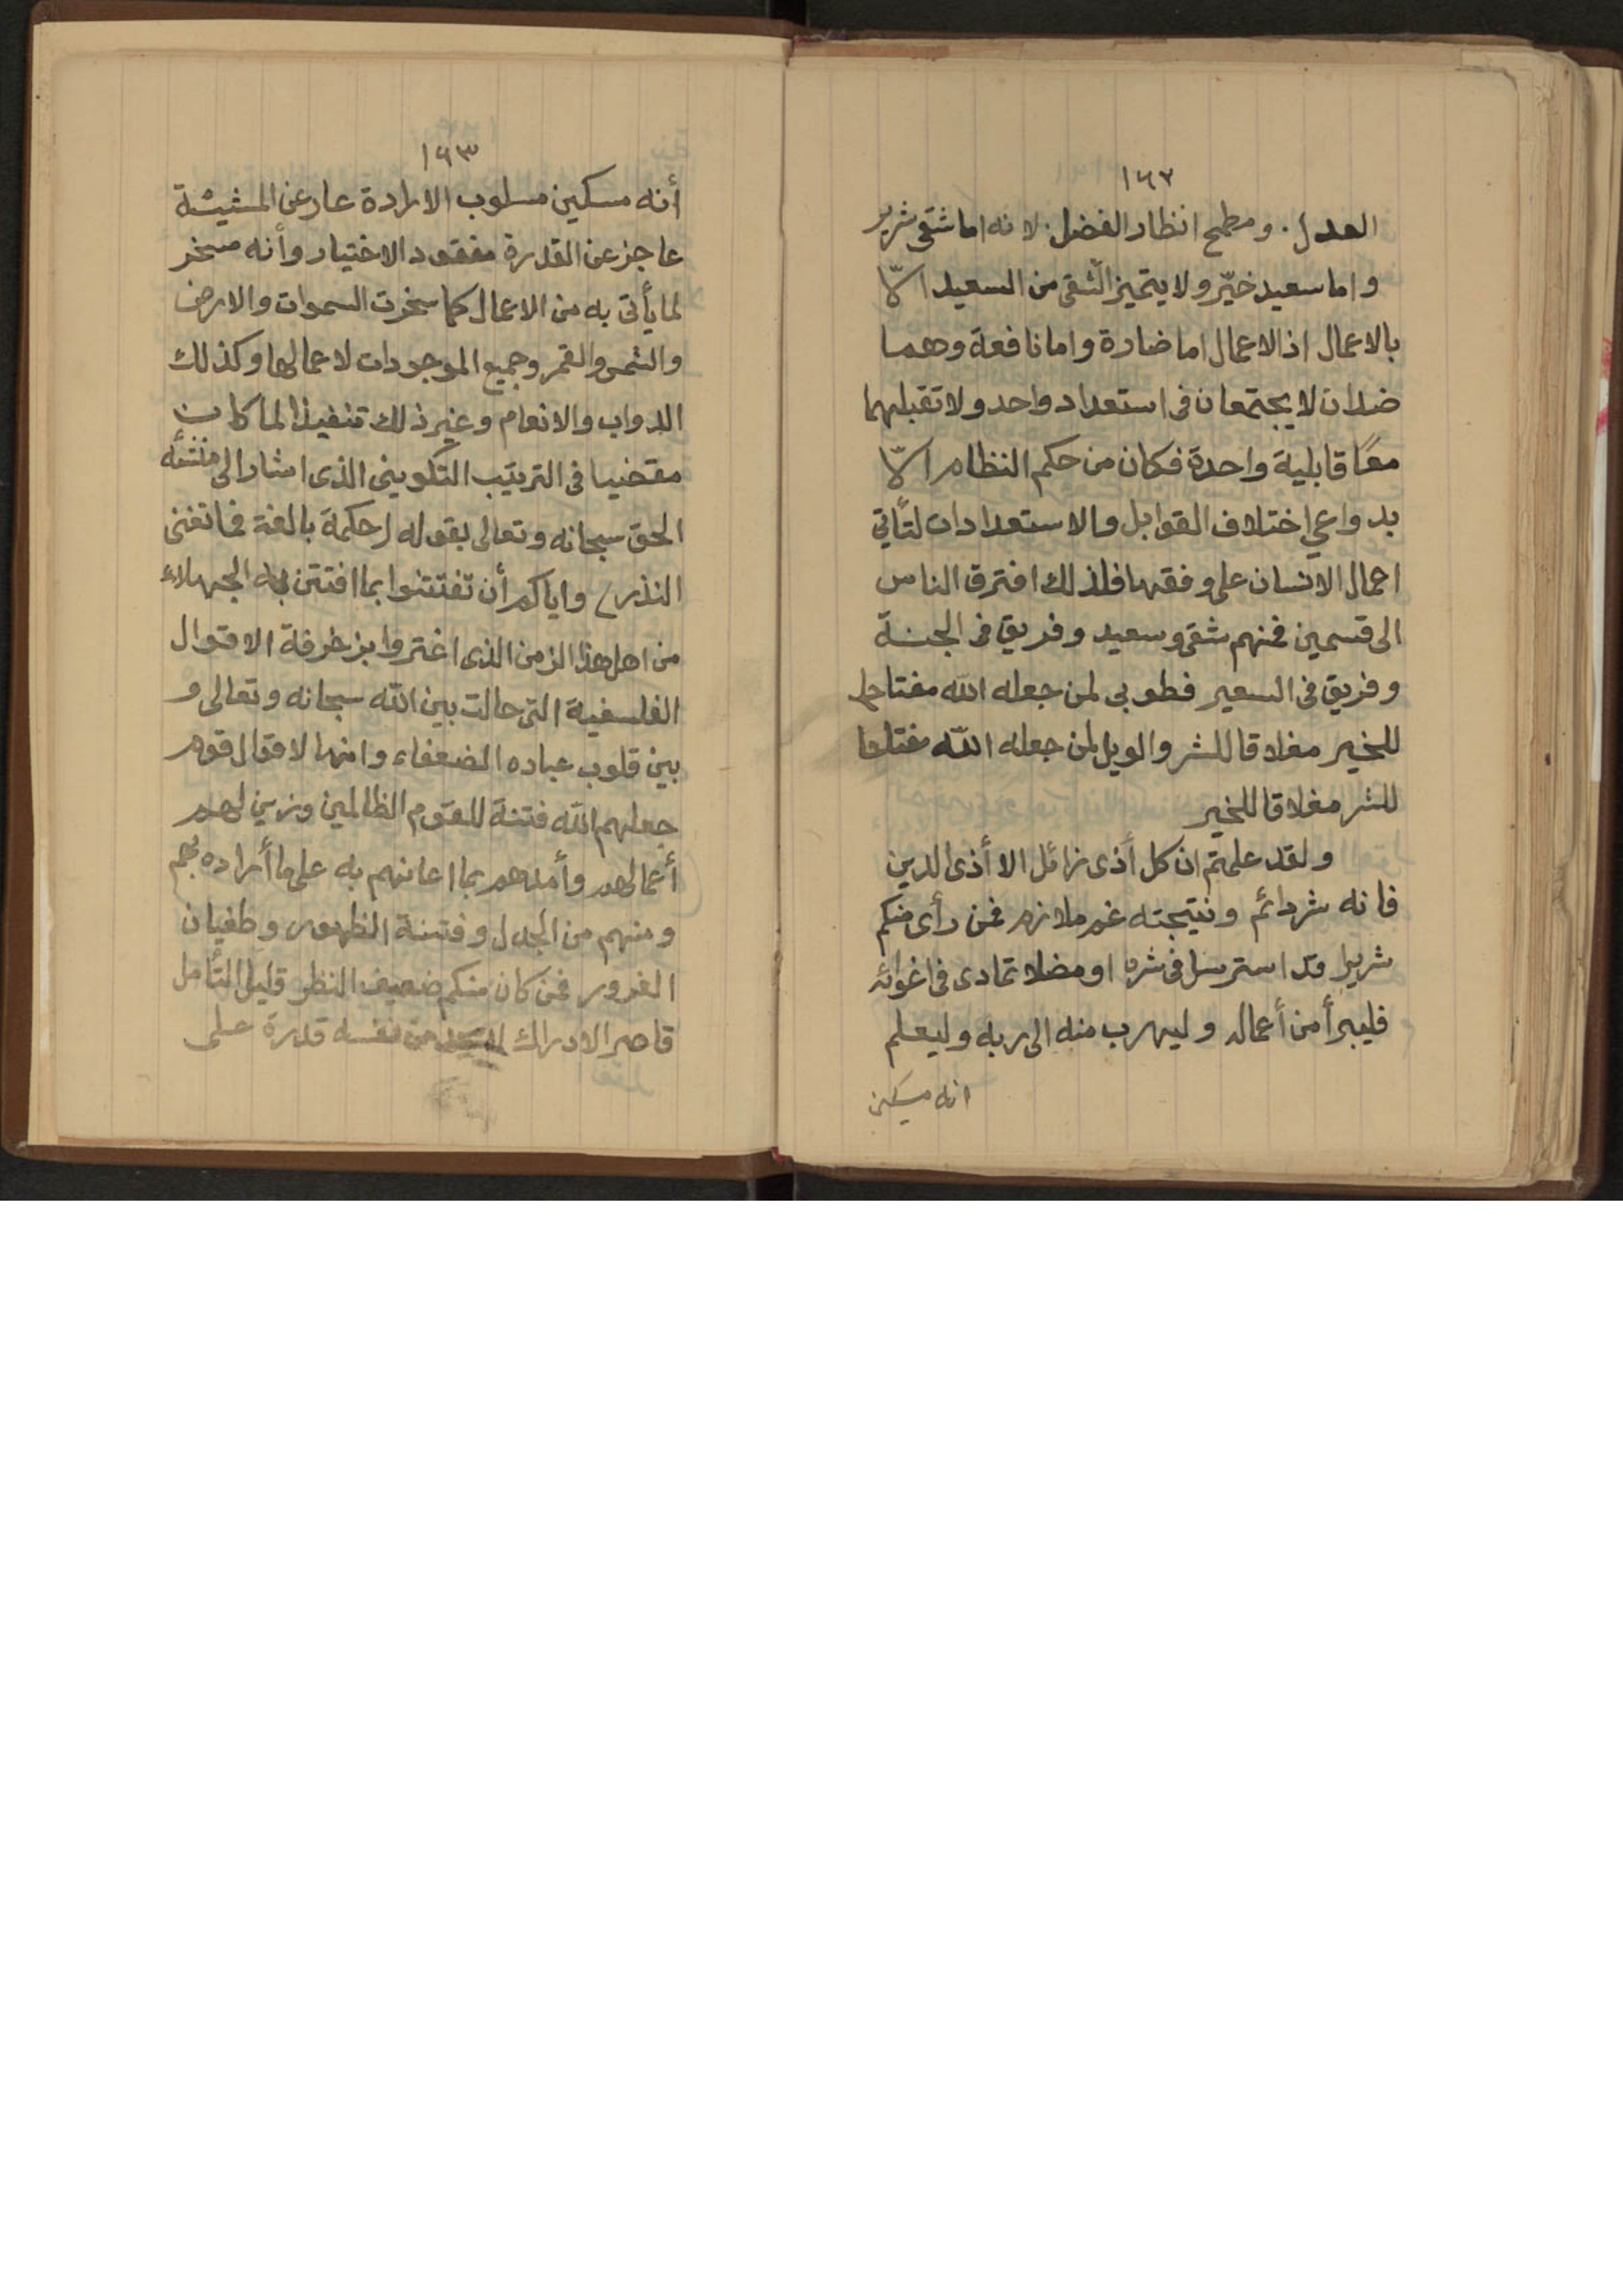 ١٦٢
العدل . ومطمح انظار الفضل . لانه اما شقى شرير
واما سعيد خيّر ولا يتميز الشقى من السعيد الّا
بالاعمال اذ الاعمال اما ضارة واما نافعة وهما
ضدان لا يجتمعان فى استعداد واحد ولا تقبلهما
معًا قابلية واحدة فكان من حكم النظام الّا
بدواعي اختلاف القوابل والاستعدادات لتأتي
اعمال الانسان على وفقها فلذلك افترق الناس
الى قسمين فمنهم شقى وسعيد وفريق فى الجنة
وفريق فى السعير فطوبى لمن جعله الله مفتاحا
للخير مغلاقا للشر والويل لمن جعله الله مفتاحا
للشر مغلاقا للخير
ولقد علمتم ان كل أذى زائل الا أذى الدين
فانه شر دائم ونتيجته غم ملازم فمن رأى منكم
شريرا قد استرسل فى شره او مضلا تمادى فى اغوائه
فليبرأ من أعماله وليهرب منه الى ربه وليعلم
انه مسكين
١٦٣
أنه مسكين مسلوب الارادة عار عن المشيئة
عاجز عن القدرة مفقود الاختيار وأنه مسخر
لما يأتى به من الاعمال كما سخرت السموات والارض
والشمس والقمر وجميع الموجودات لاعمالها وكذلك
الدواب والانعام وغير ذلك تنفيذا لما كان
مقضيا فى الترتيب التكوينى الذى اشار الى
الحق سبحانه وتعالى بقوله (حكمة بالغة فما تغنى
النذر) واياكم أن تفتتنوا بما افتتن به الجهلاء
من اهل هذا الزمن الذى اغتروا بزخرفة الاقوال
الفلسفية التى حالت بين الله سبحانه وتعالى و
بين قلوب عباده الضعفاء وانها لاقوال قوم
جعلهم الله فتنة للقوم الظالمين وزين لهم
أعمالهم وأمدهم بما اعانهم به على ما أراده بهم
ومنهم من الجدل وفتنة الظهور وطغيان
الغرور فمن كان منكم ضعيف النظر قليل التأمل
قاصر الادراك من نفسه قدرة على